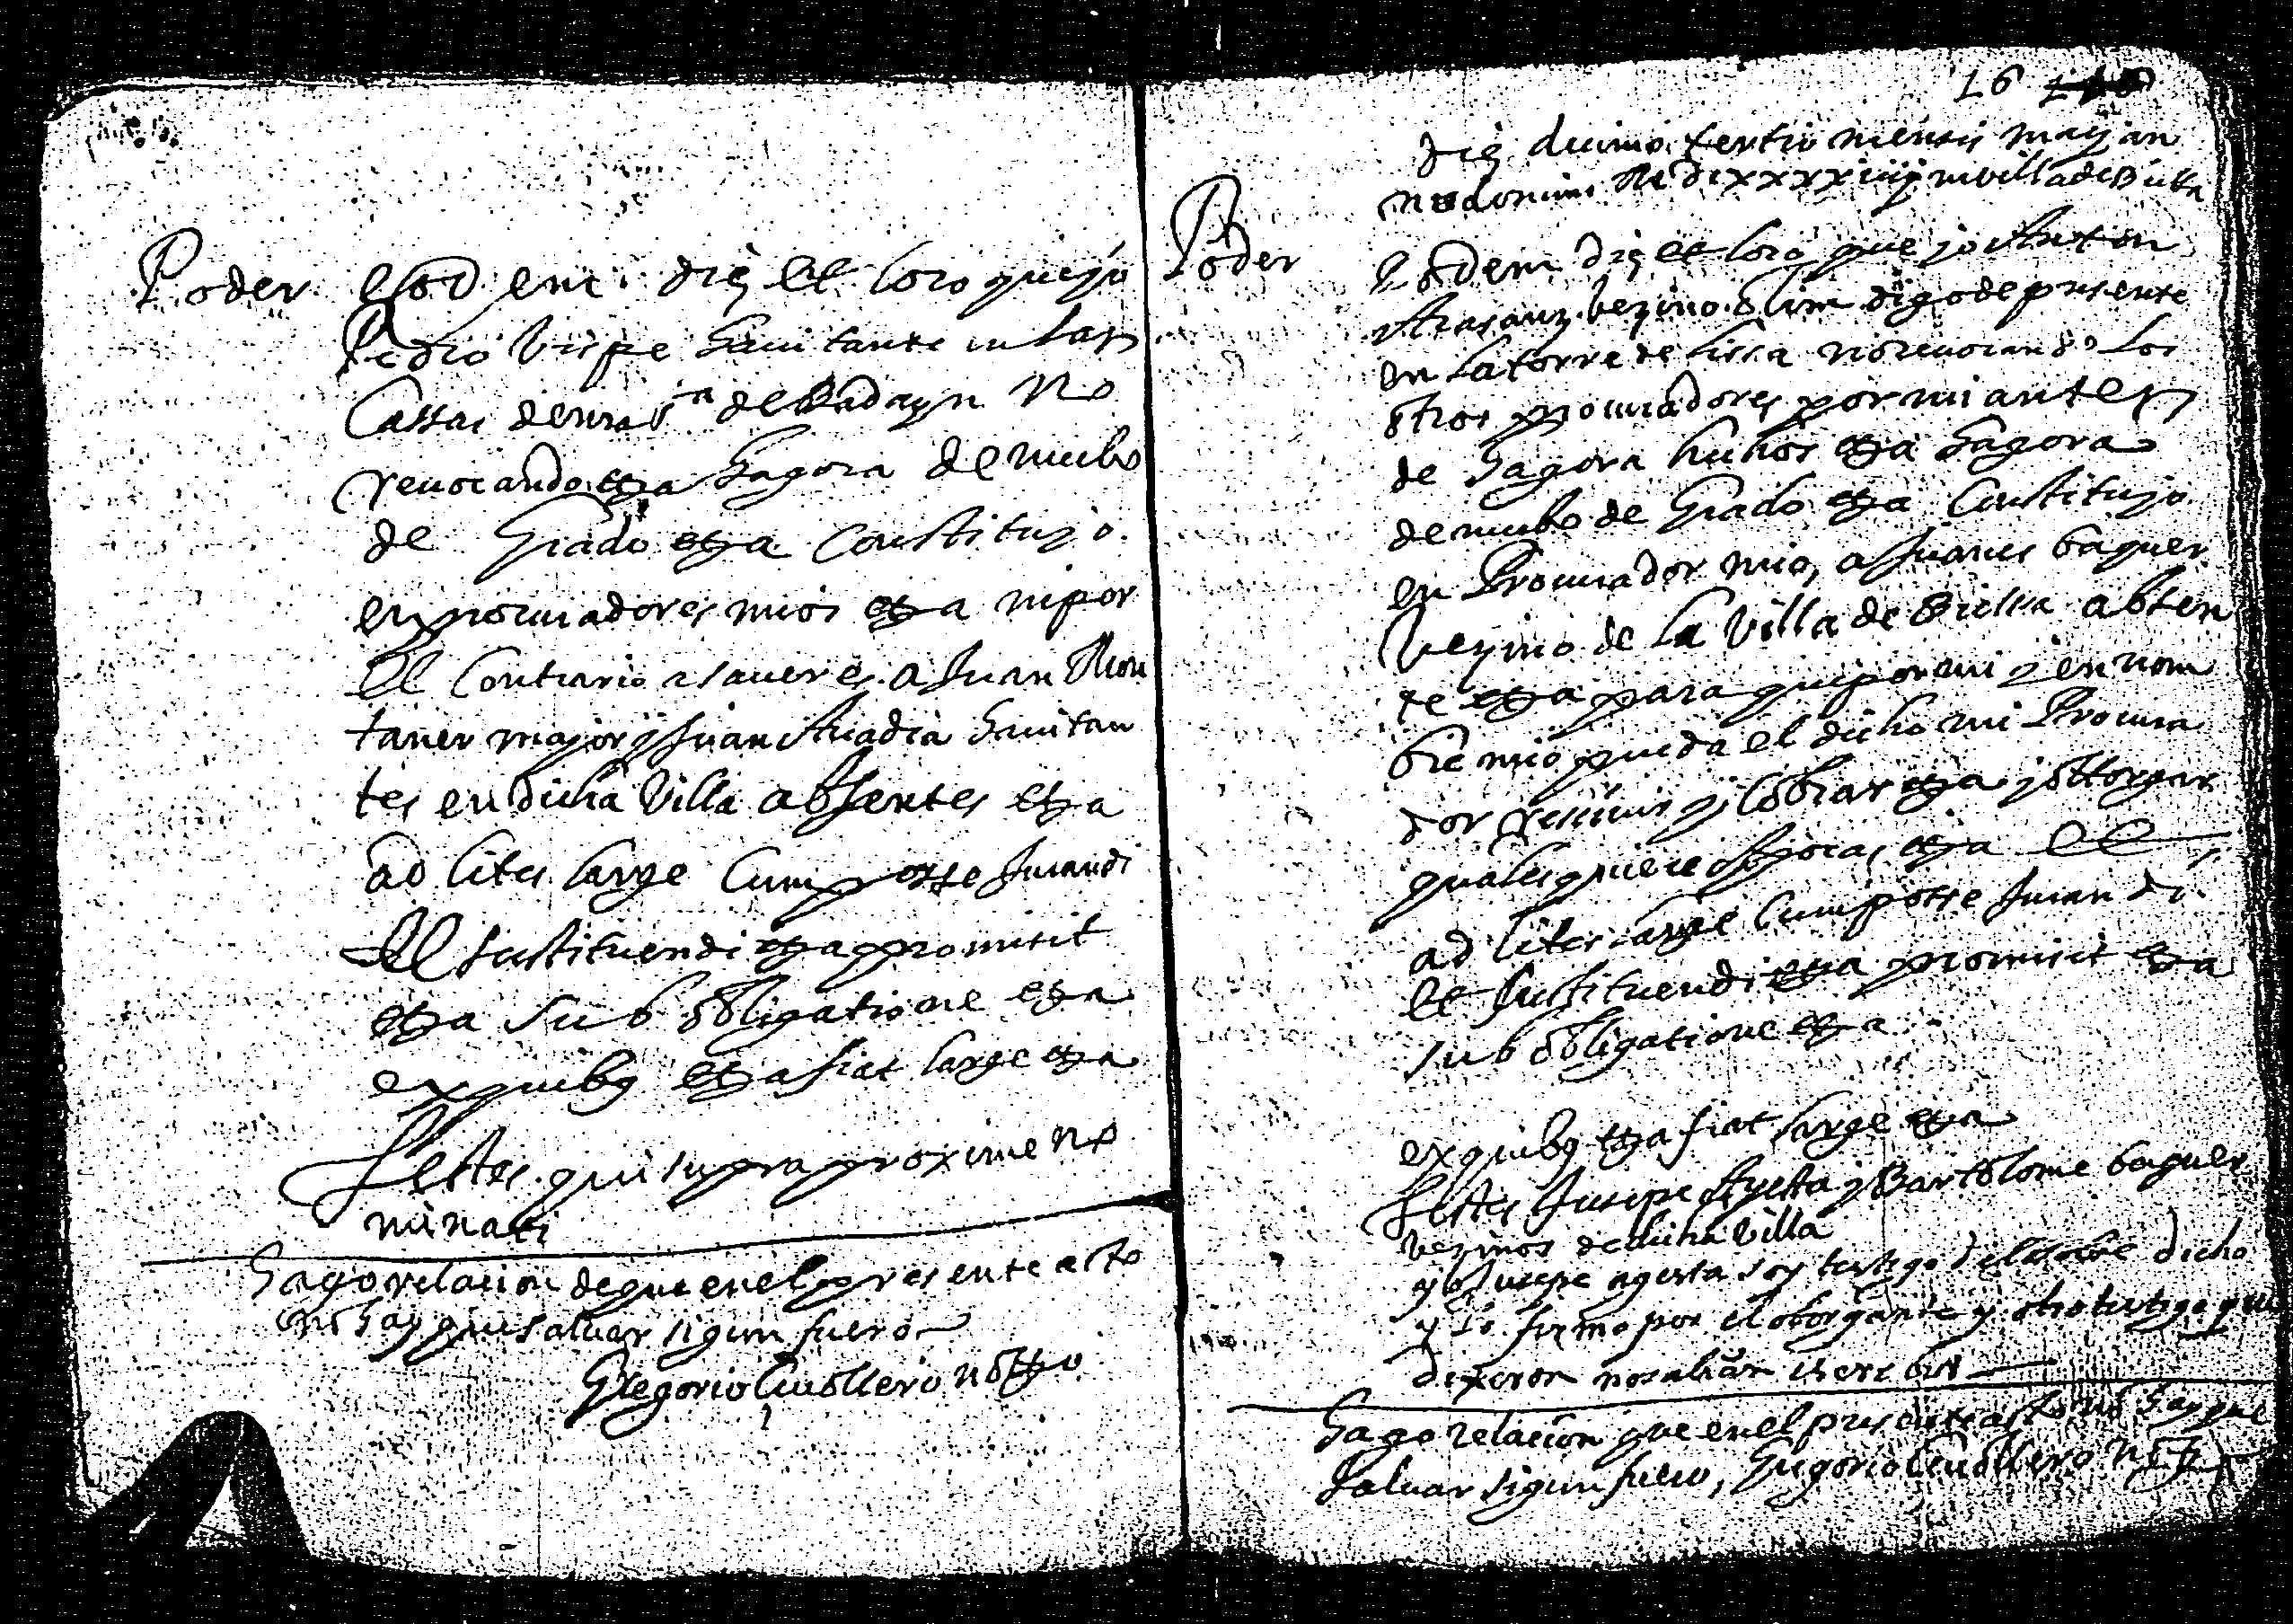 Poder
esod eni die et loco que yo
Pedro Vispe hauitante en las
Cassas de nra s.ra de Badayn no
reuocando etza hagora de nuebo
de grado etza constituyo
en procuradores mios etza ni por
el contrario a sauer es a Juan Mon
taner mayor y Juan Abadia hauitan
tes en dicha Villa absentes etza
ad lites large cum posse Jurandi
et sustituendi etza promisit
etza sub obligatione etza
ex quibus etza fiat large etza
Testes qui supra proxime no
minati
Hago relacion de que en el presente acto
no hay que saluar sigun fuero
Gregorio Cauallero notto
16
die decimo tertio mensis may an
no domini M dcxxxxiiij in villa de Bielsa
Poder
Eodem die et loco que yo Anton
vezino de digo de presente
en la torre de liesa no reuocando los
otros procuradores por mi antes
de hagora hechos etza hagora
de nuebo de grado etza constituyo
en Procurador mio, a Juanes baguer
Vezino de la Villa de Bielsa absen
te etza para que por mi y en nom
bre mio pueda el dicho mi Procura
dor resciuir y cobrar etza y ottorgar
qualesquiere apocas etza et
ad lites large cum posse Jurandi
et sustituendi etza promisit etza
sub obligatione etza
ex quibus etza fiat large etza
Testes Jusepe Ayerta y Bartolome baguer
vezinos de dicha Villa
yo Jusepe ayerta soy testigo de lo sobre dicho
y lo firmo por el otorgante y otro testigo que
dixeron no sabian escrebir
Hago relacion que en el presente acto no hay que
saluar sigun fuero, Gregorio Cauallero nott